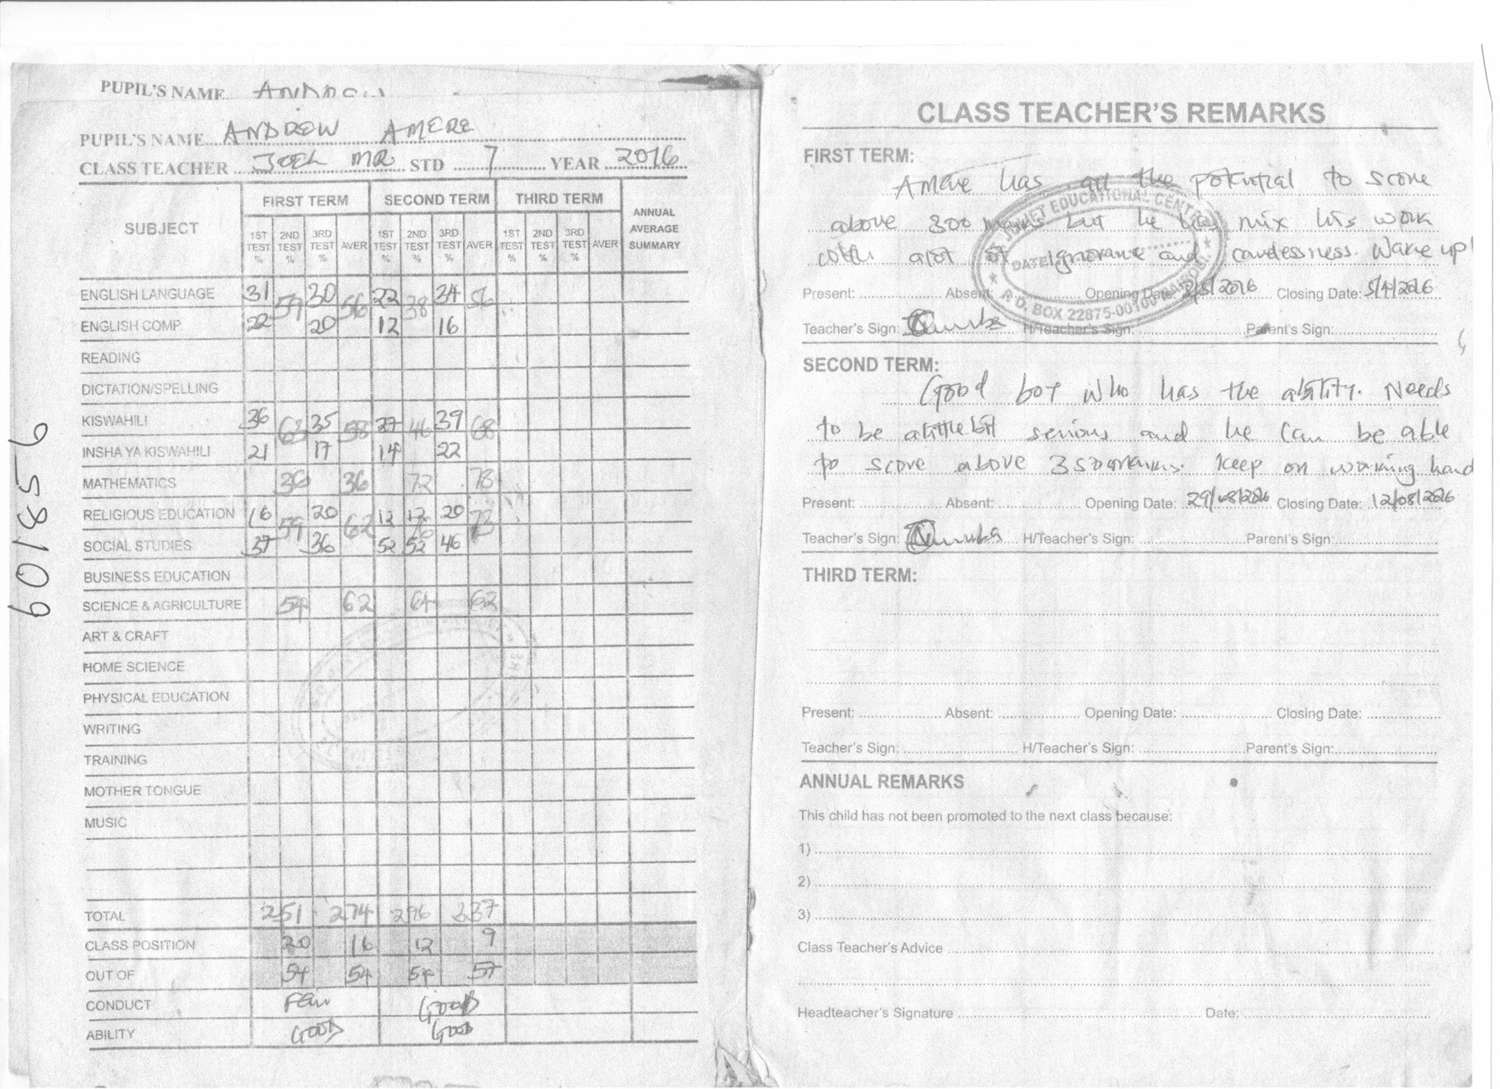 PUPIL'S NAME
PUPIL'S NAME ANDREW AMERE
CLASS TEACHER JOEL MR STD 7 YEAR 2016
SUBJECT FIRST TERM SECOND TERM THIRD TERM ANNUAL AVERAGE SUMMARY
1ST TEST % 2ND TEST % 3RD TEST % AVER 1ST TEST % 2ND TEST % 3RD TEST % AVER 1ST TEST % 2ND TEST % 3RD TEST % AVER
ENGLISH LANGUAGE 31 59 30 56 22 38 34 56
ENGLISH COMP. 22 20 12 16
READING
DICTATION/SPELLING
KISWAHILI 36 63 35 58 27 46 39 68
INSHA YA KISWAHILI 21 17 14 22
MATHEMATICS 36 36 72 78
RELIGIOUS EDUCATION 16 59 20 62 12 12 20 73
SOCIAL STUDIES 37 36 52 52 46
BUSINESS EDUCATION
SCIENCE & AGRICULTURE 54 62 64 62
ART & CRAFT
HOME SCIENCE
PHYSICAL EDUCATION
WRITING
TRAINING
MOTHER TONGUE
MUSIC
TOTAL 251 274 296 337
CLASS POSITION 20 16 12 9
OUT OF 54 54 54 57
CONDUCT Fair GOOD
ABILITY GOOD GOOD
601856
CLASS TEACHER'S REMARKS
FIRST TERM:
Amere has all the potential to score
above 300 marks but he has mix his work
with alot of ignorance and carelessness. Wake up!
Present: Absent Opening Date: 2/5/2016 Closing Date: 5/4/2016
Teacher's Sign: H/Teacher's Sign: Parent's Sign:
EDUCATIONAL CENT
DATE
P.O. BOX 22875-00100 NAIROBI
SECOND TERM:
Good boy who has the ability. Needs
to be alittle bit serious and he can be able
to score above 350 marks. Keep on working hard
Present: Absent: Opening Date: 29/08/2016 Closing Date: 12/08/2016
Teacher's Sign: H/Teacher's Sign: Parent's Sign:
THIRD TERM:
Present: Absent: Opening Date: Closing Date:
Teacher's Sign: H/Teacher's Sign: Parent's Sign:
ANNUAL REMARKS
This child has not been promoted to the next class because:
1)
2)
3)
Class Teacher's Advice
Headteacher's Signature Date: